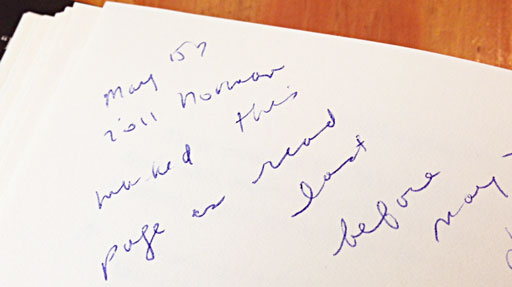 May 15
2011 Norman
marked this
page as read
last
before
may